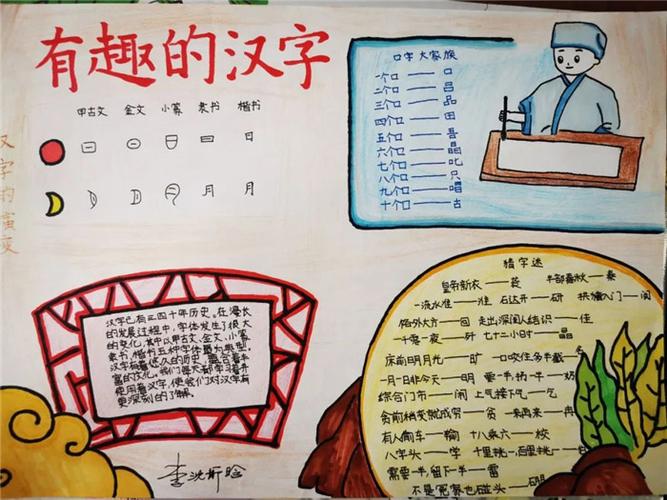 有趣的汉字
甲古文 金文 小篆 隶书 楷书
日 日
月 月
汉字的演变
口字大家族
一个口——口
二个口——吕
三个口——品
四个口——田
五个口——吾
六个口——晶
七个口——叱
八个口——只
九个口——唱
十个口——古
汉字已有三四千年历史,在漫长
的发展过程中,字体发生了很大
的变化,其中以甲古文,金文,小篆
隶书,楷书五种字体最为典型。
汉字有着悠久的历史,
富的文化。我们每天都学习着
使用着汉字,使我们对汉字有
更深刻的了解。
猜字迷
皇帝新衣——袭 半部春秋——秦
一流水准——淮 石达开——研
格外大方——回 走出深闺人结识——佳
一千零一夜——歼 七十二小时——晶
床前明月光——旷 一口咬住多半截——名
一月一日非今天——明
综合门市——闹 上气接下气——乞
贪前稍变就成穷——贫 一来再来——冉
有人偷车——输 十八乘六——校
八字头——学
需要一半,留下一半——雷
不是冤家也碰头——